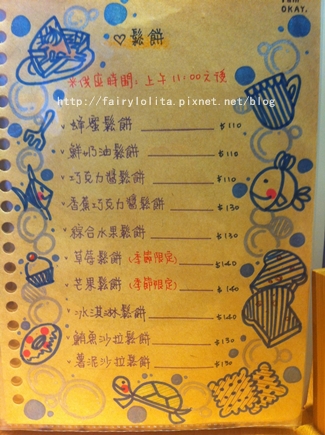 OKAY.
♡ 鬆餅
※供應時間：上午11:00之後
http://fairylolita.pixnet.net/blog
ˇ 蜂蜜鬆餅 $110
ˇ 鮮奶油鬆餅 $110
ˇ 巧克力醬鬆餅 $110
ˇ 香蕉巧克力鬆餅 $130
ˇ 綜合水果鬆餅 $130
ˇ 草莓鬆餅 (季節限定) $140
ˇ 芒果鬆餅 (季節限定) $140
ˇ 冰淇淋鬆餅 $140
ˇ 鮪魚沙拉鬆餅 $130
ˇ 薯泥沙拉鬆餅 $130